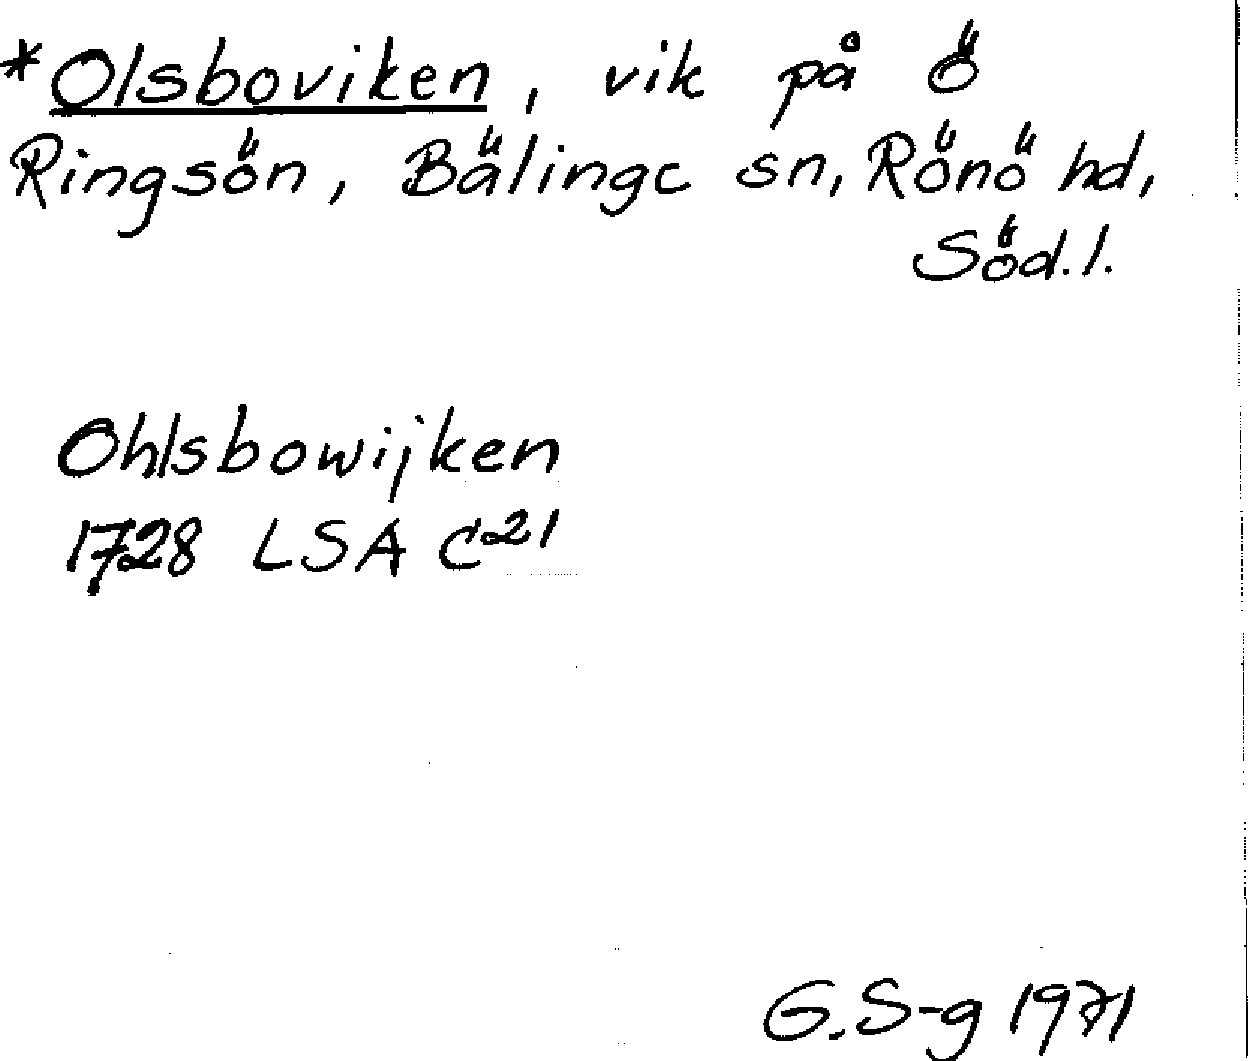 *Olsboviken, vik på ö
Ringsön, Bälinge sn, Rönö hd,
Söd.l.
Ohlsbowijken
1728 LSA C21
G.S-g 1971